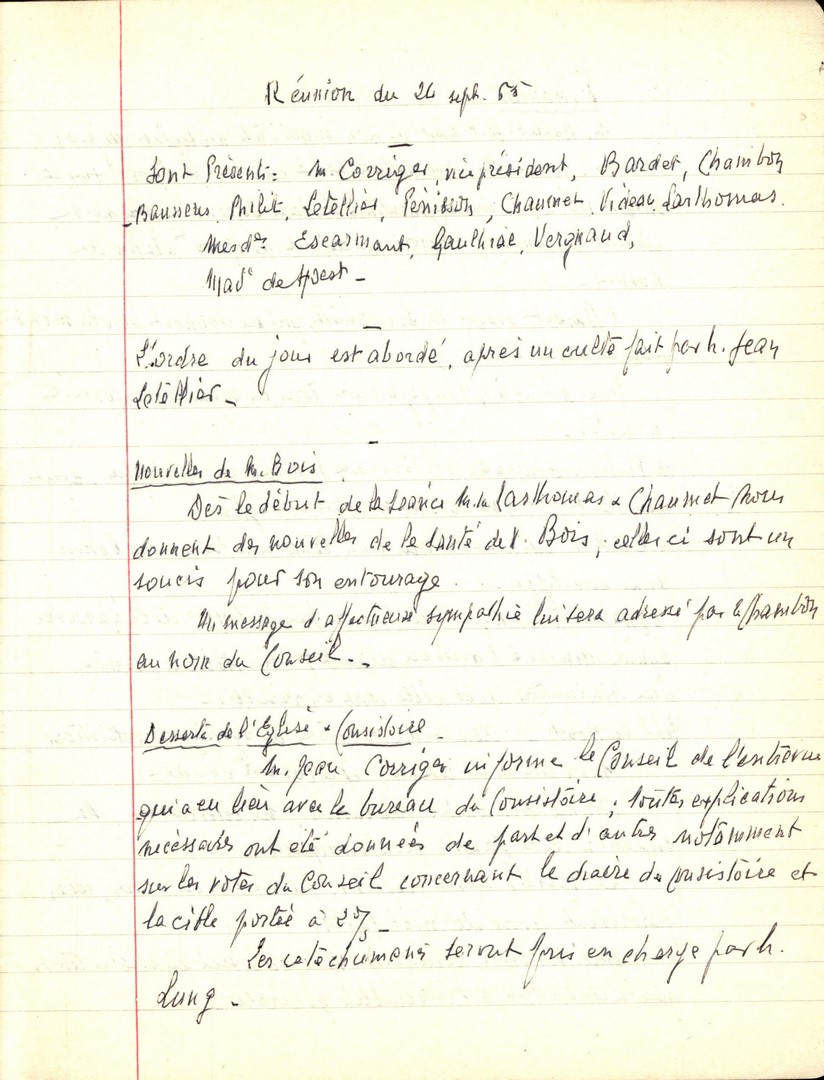 Réunion du 26 sept. 65
Sont Présents: M. Corriger, vice président, Bardet, Chambon
Bannens, Philit, Letellier, Pénisson, Chaumet, Videau, Lasthomas.
Mesdes Escarmant, Gaulhiac, Vergnaud,
Made de
L'ordre du jour est abordé, après un culte fait par M. Jean
Letellier -
Nouvelles de M. Bois.
Dès le début de la séance M.M Lasthomas & Chaumet nous
donnent des nouvelles de la Santé de M. Bois, celles ci sont un
soucis pour son entourage.
Un message d'affectueuse sympathie lui sera adressé par M. Chambon
au nom du Conseil. -
Desserte de l'Eglise & Consistoire -
M. Jean Corriger informe le Conseil de l'entrevue
qui a eu lieu avec le bureau du Consistoire ; toutes explications
nécessaires ont été données de part et d'autres notamment
sur les votes du Conseil concernant le du Consistoire et
la cible portée à
Les catéchumènes seront pris en charge par M.
Lung -